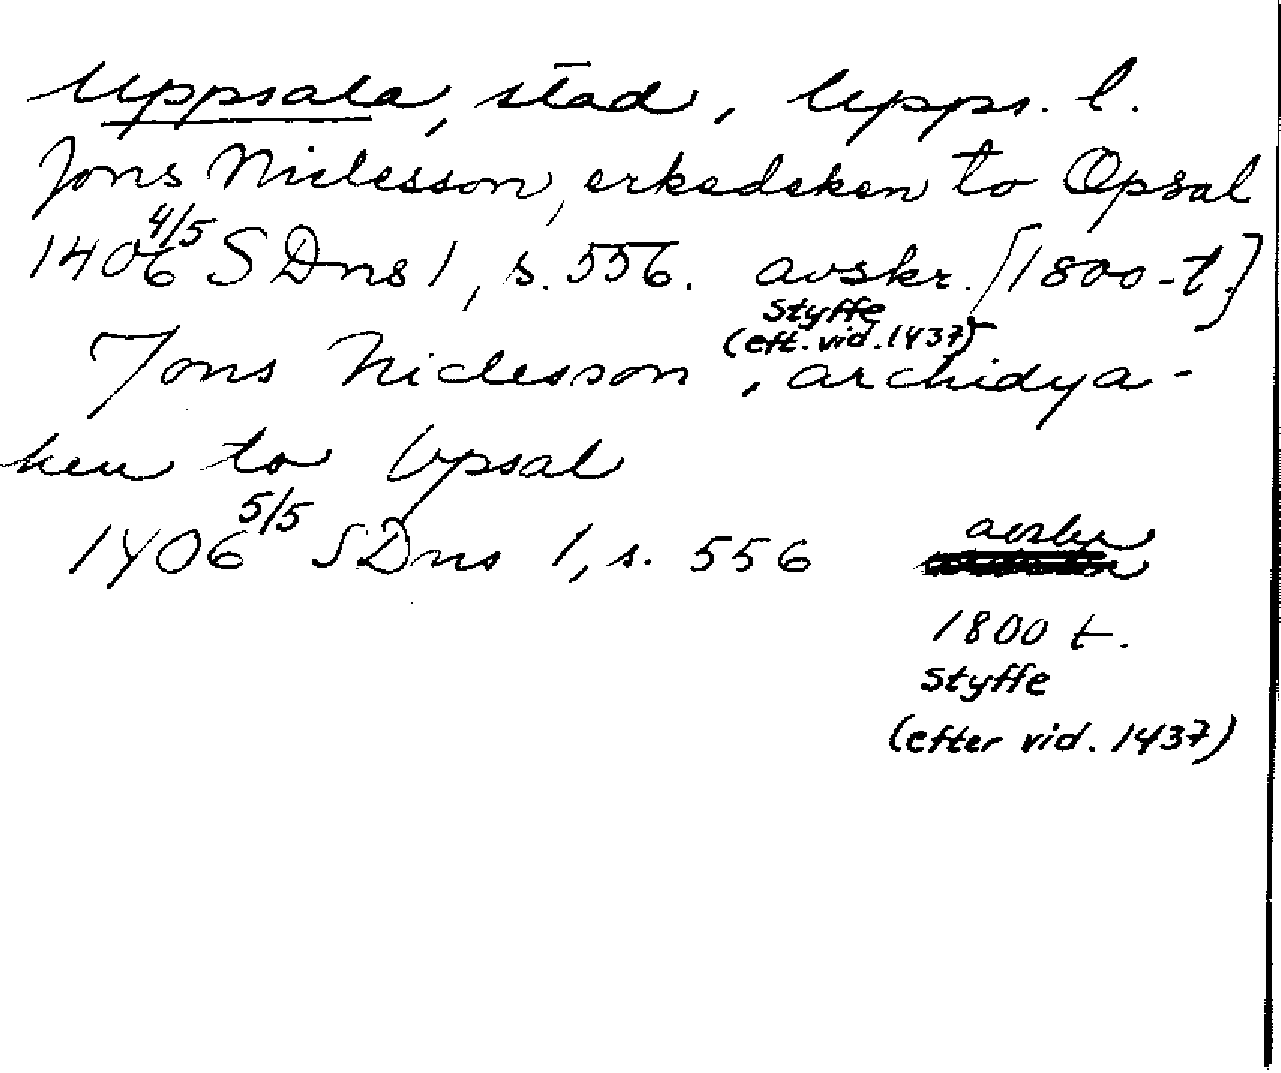 Uppsala, stad, Upps. l.
Jons Niclesson, erkedeken to Opsal
1406 4/5 SDns 1, s. 556. avskr. [1800-t.]
Styffe
(eft. vid. 1437)
Jons Niclesson, archidya-
ken to Upsal
1406 5/5 SDns 1, s. 556 avskr
1800 t.
Styffe
(efter vid. 1437)